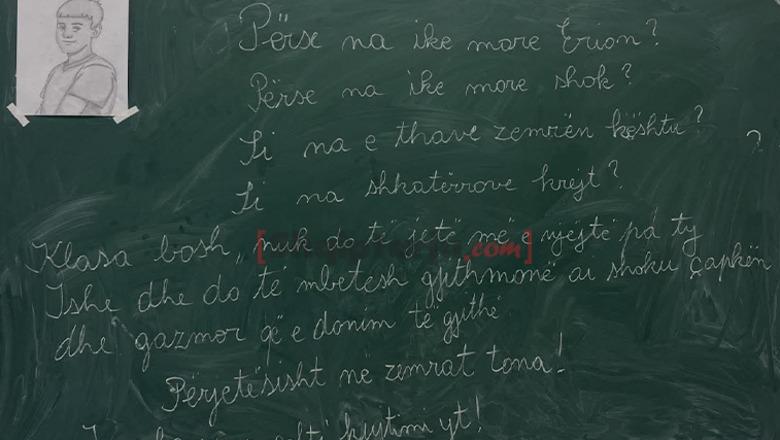 Përse na ike more Erion?
Përse na ike more shok?
Si na e thave zemrën kështu?
?
Si na shkatërrove krejt?
Klasa bosh, nuk do të jetë më e njëjtë pa ty
Ishe dhe do të mbetesh gjithmonë ai shoku çapkën
dhe gazmor që e donim të gjithë
Përjetësisht në zemrat tona!
kujtimi yt!